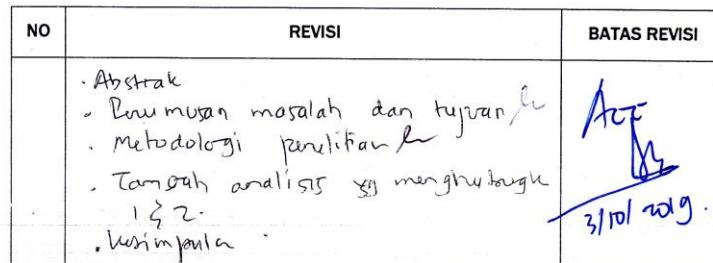 NO REVISI BATAS REVISI
. Abstrak
. Perumusan masalah dan tujuan
. Metodologi penelitian
. Tambah analisis yg menghubungk
1 & 2.
. Kesimpulan
Acc
3/10/2019.